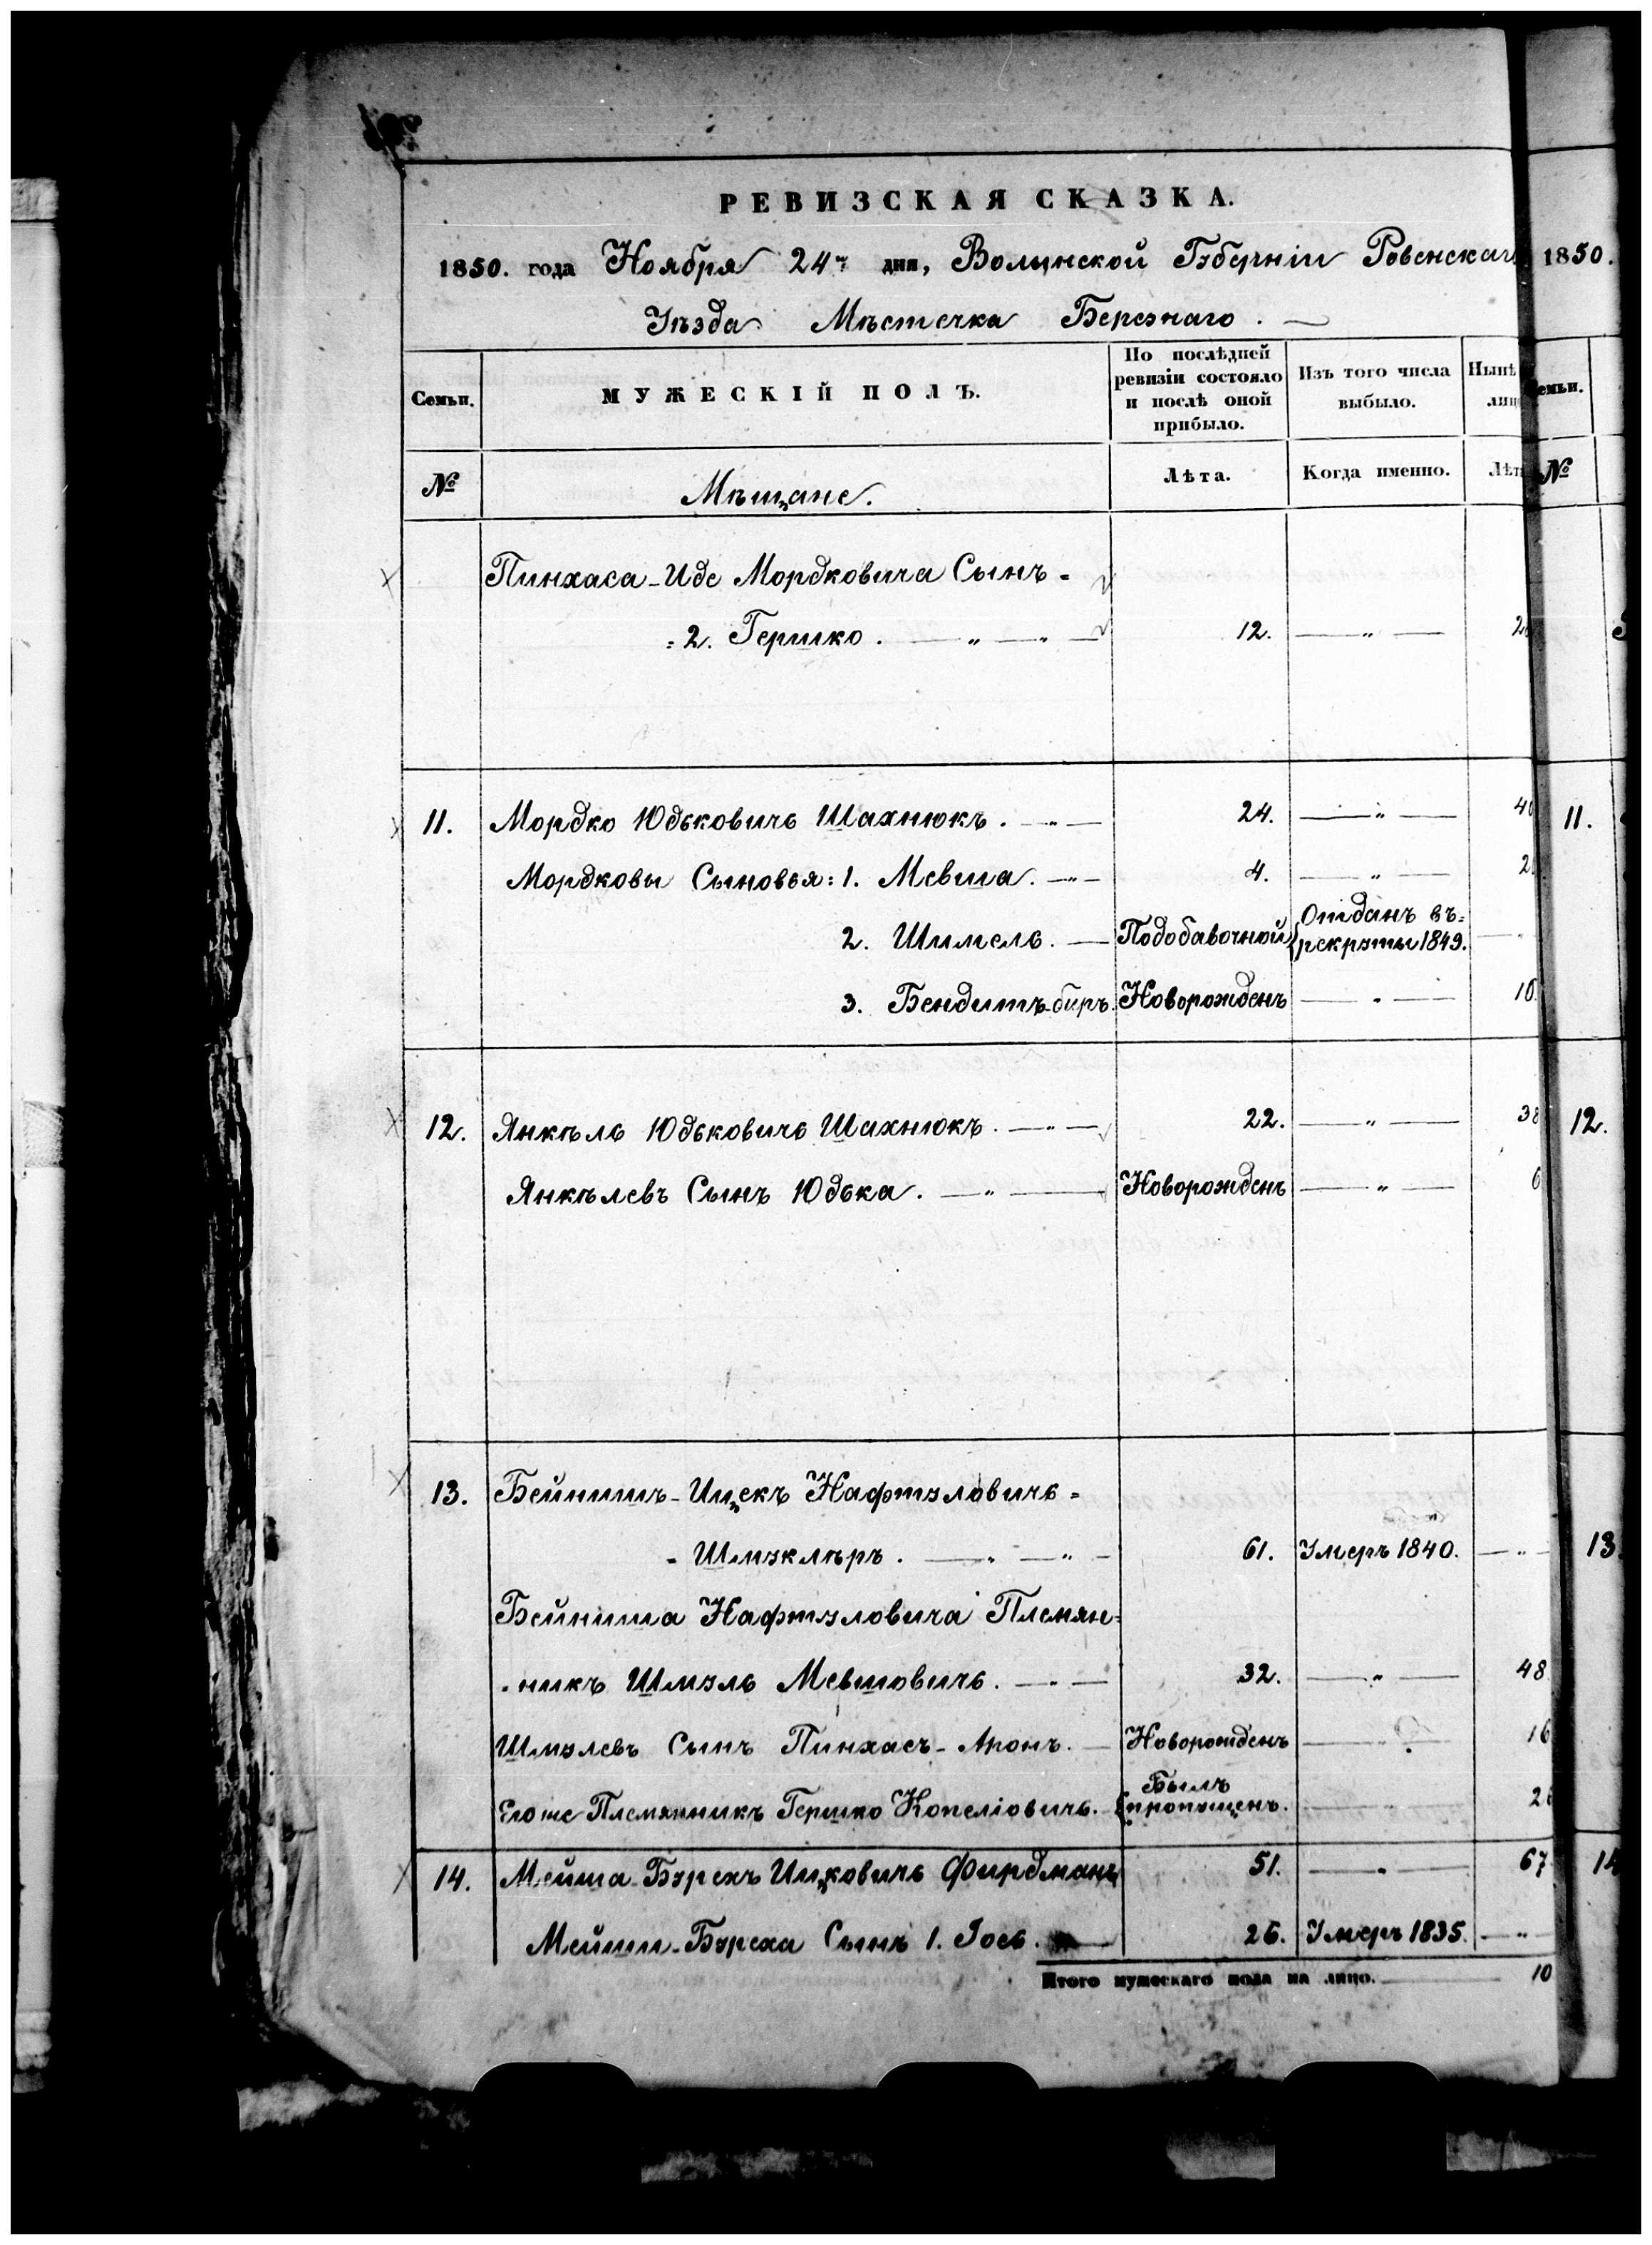 РЕВИЗСКАЯ СКАЗКА.
1850. года Ноября 24 дня, Волынской Губерніи Ровенскаго 1850.
Уѣзда Мѣстечка Березнаго.
Семьи. МУЖЕСКІЙ ПОЛЪ. По послѣдней ревизіи состояло и послѣ оной прибыло. Изъ того числа выбыло. Нынѣ
№ Мѣщане. Лѣта. Когда именно. №
Пинхаса-Иде Мордковича Сынъ =
= 2. Гершко. — „ — „ — 12. — „ —
11. Мордко Юдьковичь Шахнюкъ. — „ — 24. — „ — 11.
Мордковы Сыновья: 1. Мевша. — „ — 4. — „ —
2. Шимель. — Подобавочной Отданъ въ= рекруты 1849.
3. Бендитъ-биръ. Новорожденъ — „ —
12. Янкѣль Юдьковичь Шахнюкъ. — „ — 22. — „ — 38 12.
Янкѣлевъ Сынъ Юдька. — „ — Новорожденъ — „ — 6
13. Бейнишъ-Ицекъ Нафтуловичь =
- Шмуклѣръ. — „ — „ — 61. Умеръ 1840. — „ — 13.
Бейниша Нафтуловича Племян=
- никъ Шмуль Мевшовичь. — „ — 32. — „ — 48
Шмулевъ Сынъ Пинхасъ-Аронъ. — Новорожденъ 16
Его же Племянникъ Гершко Копеліовичь. Былъ пропущенъ.
14. Мейша-Бурехъ Ицковичь Фирдманъ 51. — „ — 67 14
Мейши-Буреха Сынъ 1. Іось. 26. Умеръ 1835. — „ —
Итого мужескаго пола на лицо. 10